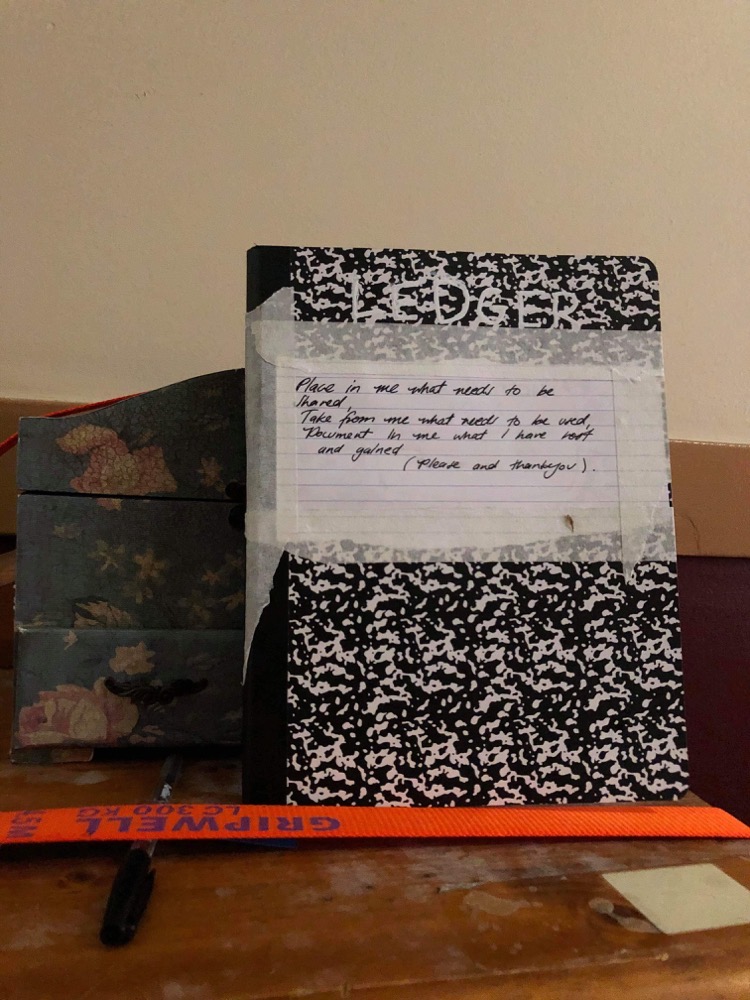 LEDGER
Place in me what needs to be
shared,
Take from me what needs to be used,
Document in me what I have lost
and gained
(Please and thankyou).
GRIPWELL
LC 300 KG